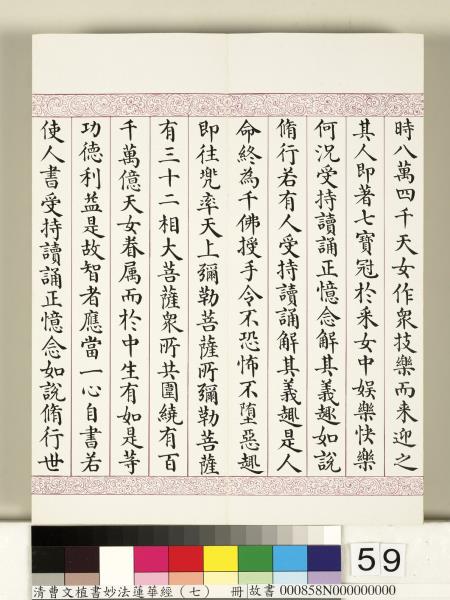 時八萬四千天女作衆技樂而来迎之
其人即著七寶冠於采女中娱樂快樂
何况受持讀誦正憶念解其義趣如說
脩行若有人受持讀誦解其義趣是人
命終為千佛授手令不恐怖不墮惡趣
即往兠率天上彌勒菩薩所彌勒菩薩
有三十二相大菩薩衆所共圍繞有百
千萬億天女眷属而於中生有如是等
功德利益是故智者應當一心自書若
使人書受持讀誦正憶念如說脩行世
59
清曹文植書妙法蓮華經（七） 冊 故書 000858N000000000